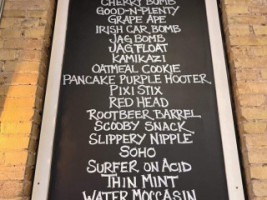 CHERRY BOMB
GOOD-N-PLENTY
GRAPE APE
IRISH CAR BOMB
JAG BOMB
JAG FLOAT
KAMIKAZI
OATMEAL COOKIE
PANCAKE PURPLE HOOTER
PIXI STIX
RED HEAD
ROOTBEER BARREL
SCOOBY SNACK
SLIPPERY NIPPLE
SOHO
SURFER ON ACID
THIN MINT
WATER MOCCASIN